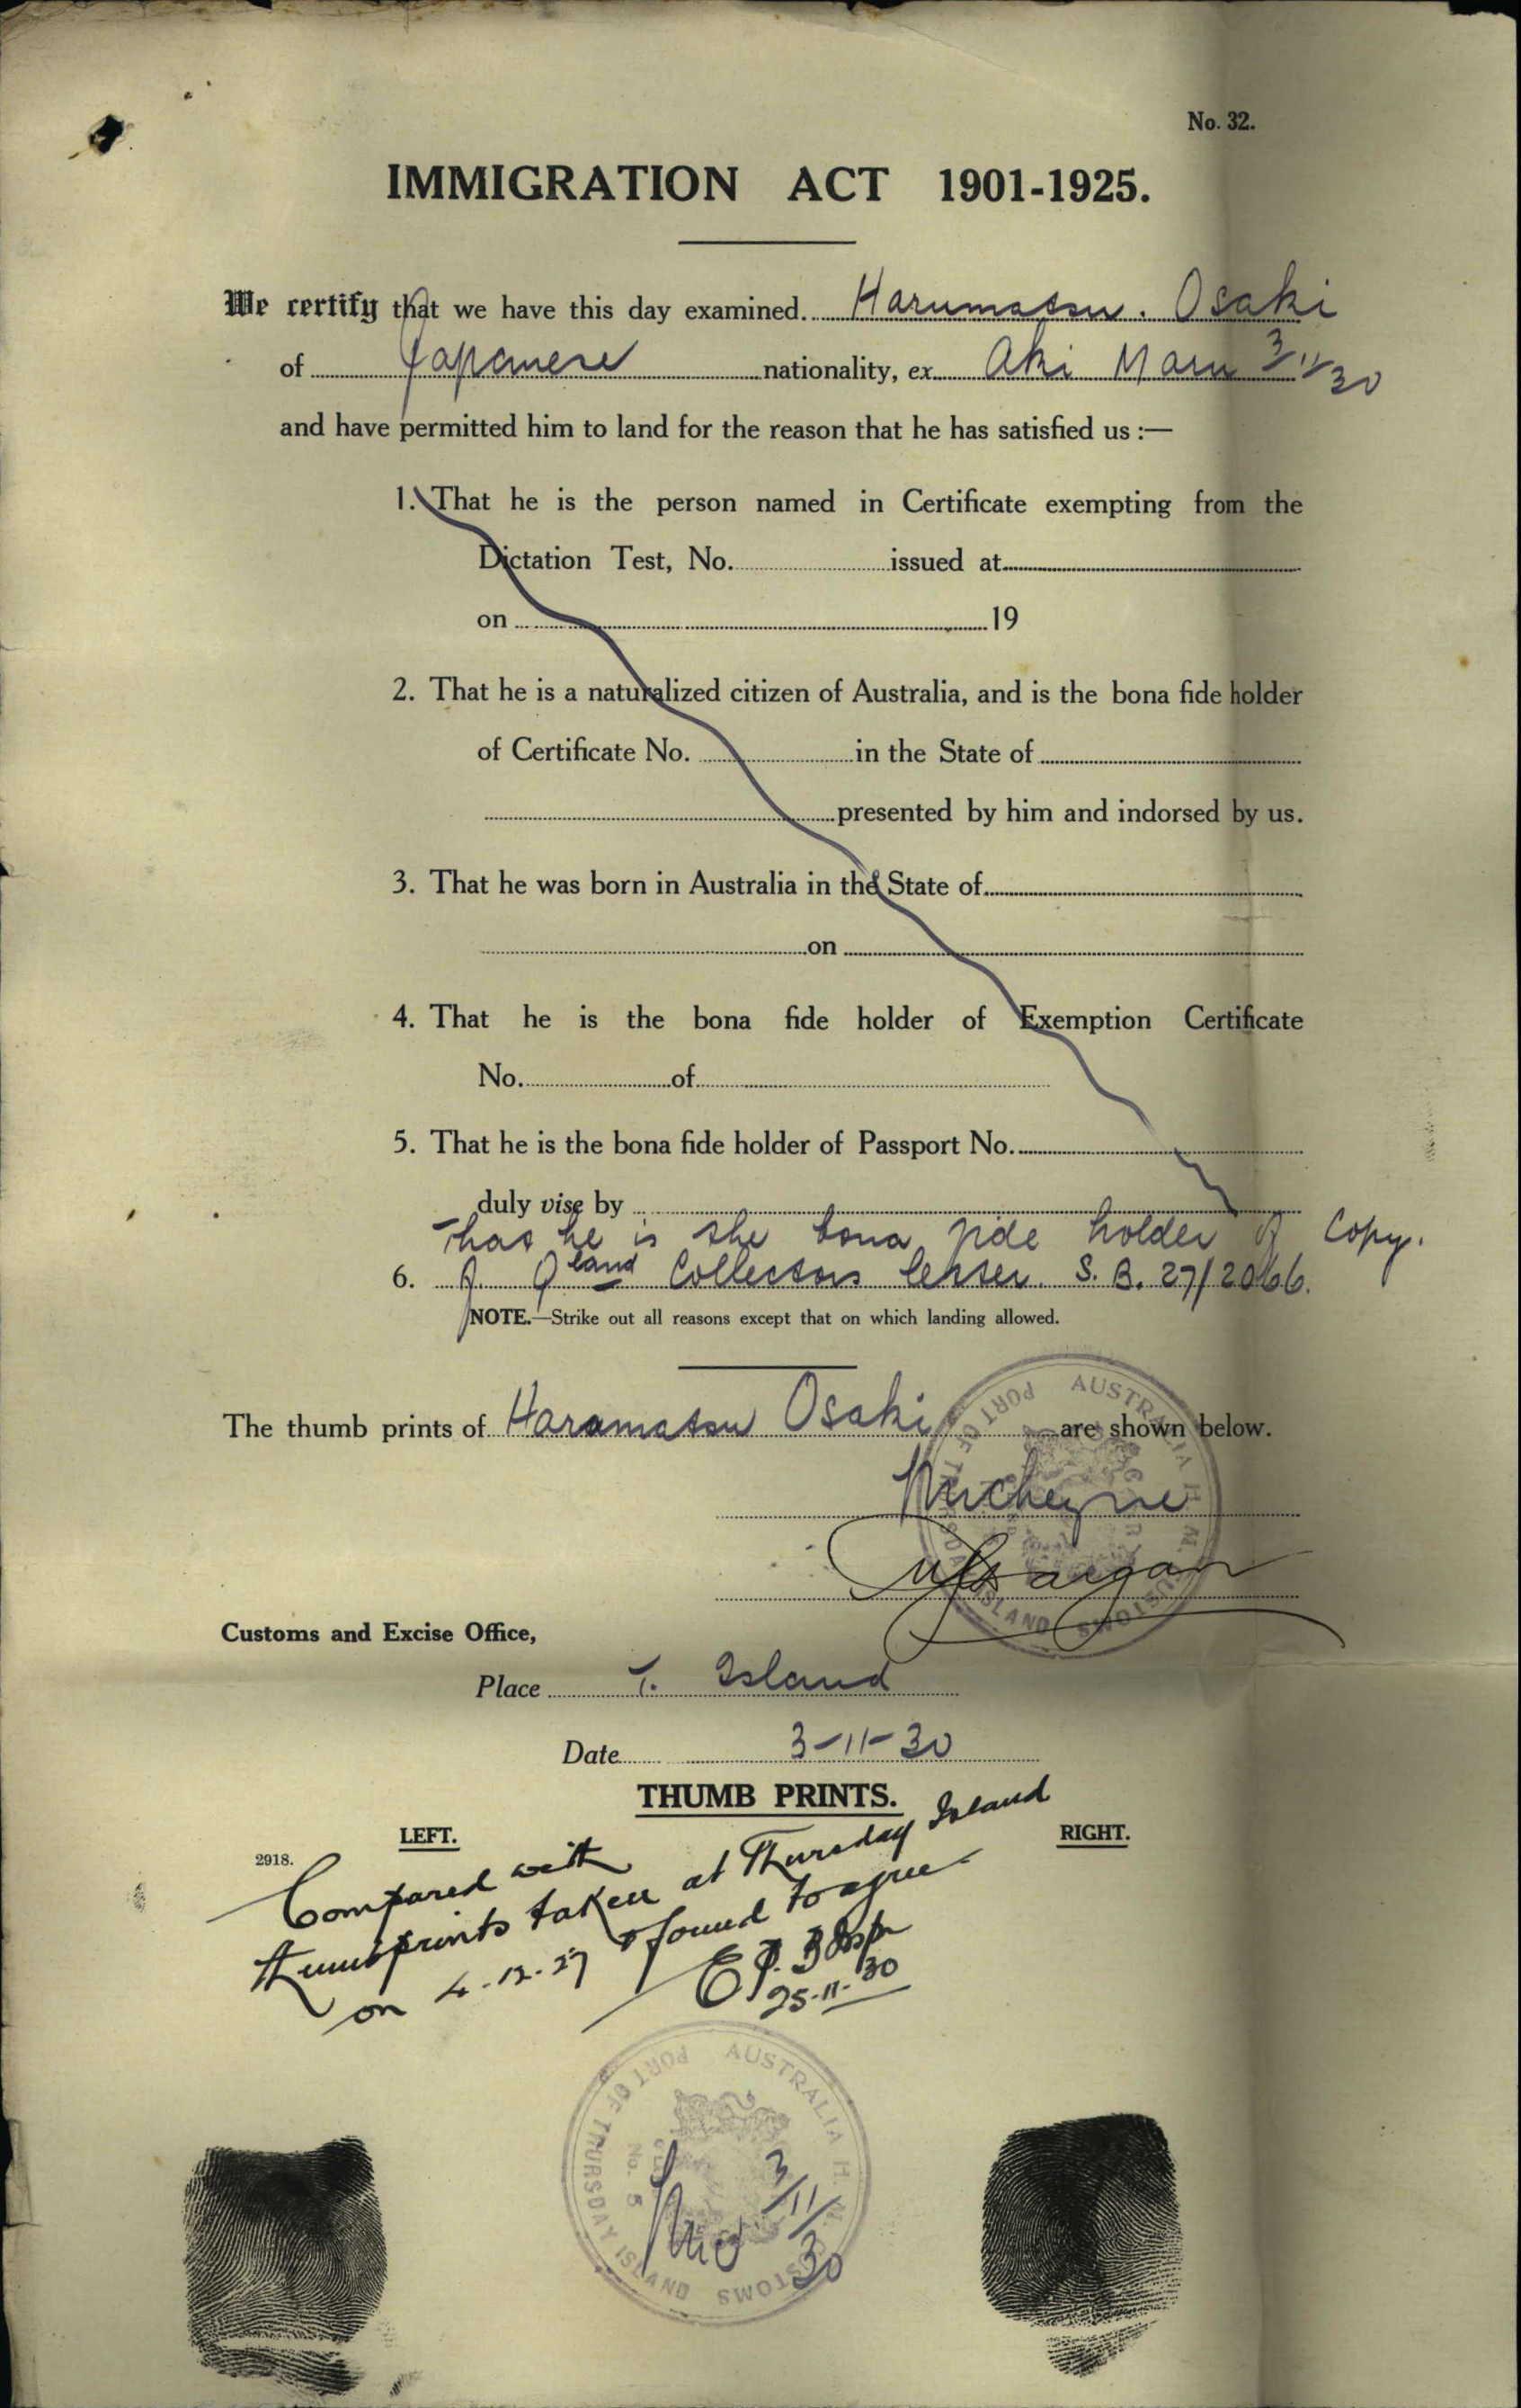 No. 32.
IMMIGRATION ACT 1901-1925.
We certify that we have this day examined Harumatsu. Osaki
of Japanese nationality, ex Aki Maru 3/11/30
and have permitted him to land for the reason that he has satisfied us :—
1. That he is the person named in Certificate exempting from the
Dictation Test, No. issued at
on 19
2. That he is a naturalized citizen of Australia, and is the bona fide holder
of Certificate No. in the State of
presented by him and indorsed by us.
3. That he was born in Australia in the State of
on
4. That he is the bona fide holder of Exemption Certificate
No. of
5. That he is the bona fide holder of Passport No.
duly vise by
That he is the bona fide holder of Copy.
6. of Qland Collectors letter. S. B. 27/2066.
NOTE.—Strike out all reasons except that on which landing allowed.
The thumb prints of Haramatsu Osaki are shown below.
Customs and Excise Office,
Place T. Island
Date 3-11-30
THUMB PRINTS.
LEFT.
RIGHT.
2918.
Compared with
thumbprints taken at Thursday Island
on 4-12-27 & found to agree
25-11-30
AUSTRALIA H. M. CUSTOMS
PORT OF THURSDAY ISLAND
No. 5
3/11/30